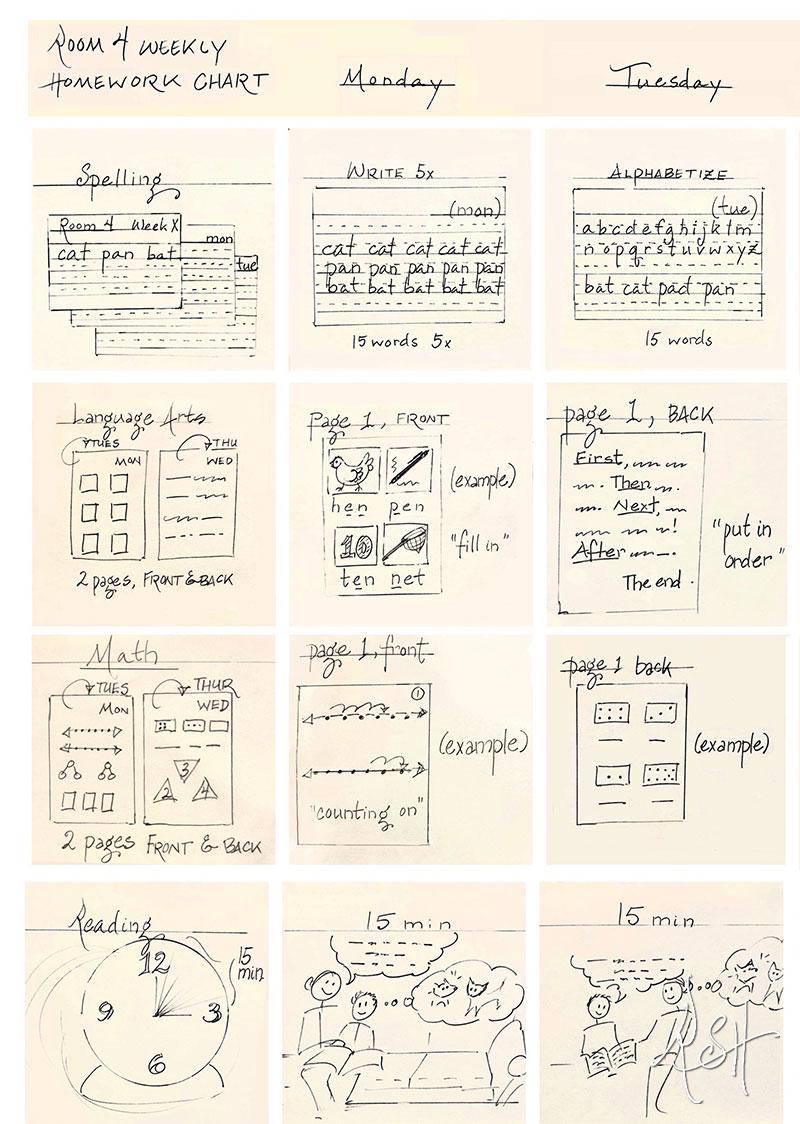 ROOM 4 WEEKLY
HOMEWORK CHART
Monday
Tuesday
Spelling
Room 4 Week X
cat pan bat
mon
tue
WRITE 5x
(mon)
cat cat cat cat cat
pan pan pan pan pan
bat bat bat bat bat
15 words 5x
ALPHABETIZE
(tue)
a b c d e f g h i j k l m
n o p q r s t u v w x y z
bat cat pad pan
15 words
Language Arts
TUES
MON
THU
WED
2 pages, FRONT & BACK
Page 1, FRONT
hen pen
10
ten net
(example)
"fill in"
page 1, BACK
First,
Then
Next,
!
After
The end.
"put in
order"
Math
TUES
MON
THUR
WED
3
2 4
2 pages FRONT & BACK
page 1, front
1
"counting on"
(example)
page 1 back
(example)
Reading
12
9 3
6
15
min
15 min
15 min
RSH